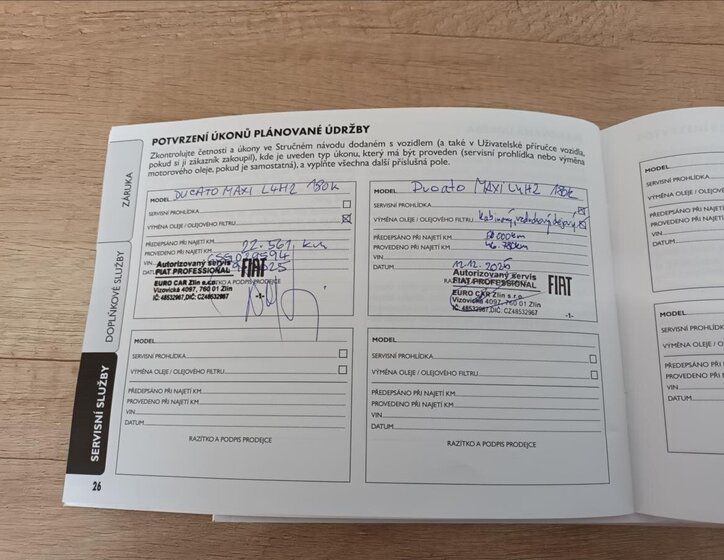 POTVRZENÍ ÚKONŮ PLÁNOVANÉ ÚDRŽBY
Zkontrolujte četnosti a úkony ve Stručném návodu dodaném s vozidlem (a také v Uživatelské příručce vozidla,
pokud si ji zákazník zakoupil), kde je uveden typ úkonu, který má být proveden (servisní prohlídka nebo výměna
motorového oleje, pokud je samostatná), a vyplňte všechna další příslušná pole.
ZÁRUKA
DOPLŇKOVÉ SLUŽBY
SERVISNÍ SLUŽBY
MODEL DUCATO MAXI L4H2 180k
SERVISNÍ PROHLÍDKA
VÝMĚNA OLEJE / OLEJOVÉHO FILTRU
PŘEDEPSÁNO PŘI NAJETÍ KM
PROVEDENO PŘI NAJETÍ KM 22.561 km
VIN
DATUM
Autorizovaný servis
FIAT PROFESSIONAL
FIAT
RAZÍTKO A PODPIS PRODEJCE
EURO CAR Zlín s.r.o.
Vizovická 4097, 760 01 Zlín
IČ: 48532967, DIČ: CZ48532967
-1-
MODEL Ducato MAXI L4H2 180k
SERVISNÍ PROHLÍDKA
VÝMĚNA OLEJE / OLEJOVÉHO FILTRU kabinový, vzduchový
PŘEDEPSÁNO PŘI NAJETÍ KM
PROVEDENO PŘI NAJETÍ KM
VIN
DATUM 12.12.2025
Autorizovaný servis
FIAT PROFESSIONAL
FIAT
EURO CAR Zlín s.r.o.
Vizovická 4097, 760 01 Zlín
IČ: 48532967, DIČ: CZ48532967
-1-
MODEL
SERVISNÍ PROHLÍDKA
VÝMĚNA OLEJE / OLEJOVÉHO FILTRU
PŘEDEPSÁNO PŘI NAJETÍ KM
PROVEDENO PŘI NAJETÍ KM
VIN
DATUM
RAZÍTKO A PODPIS PRODEJCE
MODEL
SERVISNÍ PROHLÍDKA
VÝMĚNA OLEJE / OLEJOVÉHO FILTRU
PŘEDEPSÁNO PŘI NAJETÍ KM
PROVEDENO PŘI NAJETÍ KM
VIN
DATUM
RAZÍTKO A PODPIS PRODEJCE
26
MODEL
SERVISNÍ PROHLÍDKA
VÝMĚNA OLEJE
PŘEDEPSÁNO
PROVEDENO
VIN
DATUM
MODEL
SERVISNÍ
VÝMĚNA
PŘEDEPSÁNO
PROVEDENO
VIN
DATUM